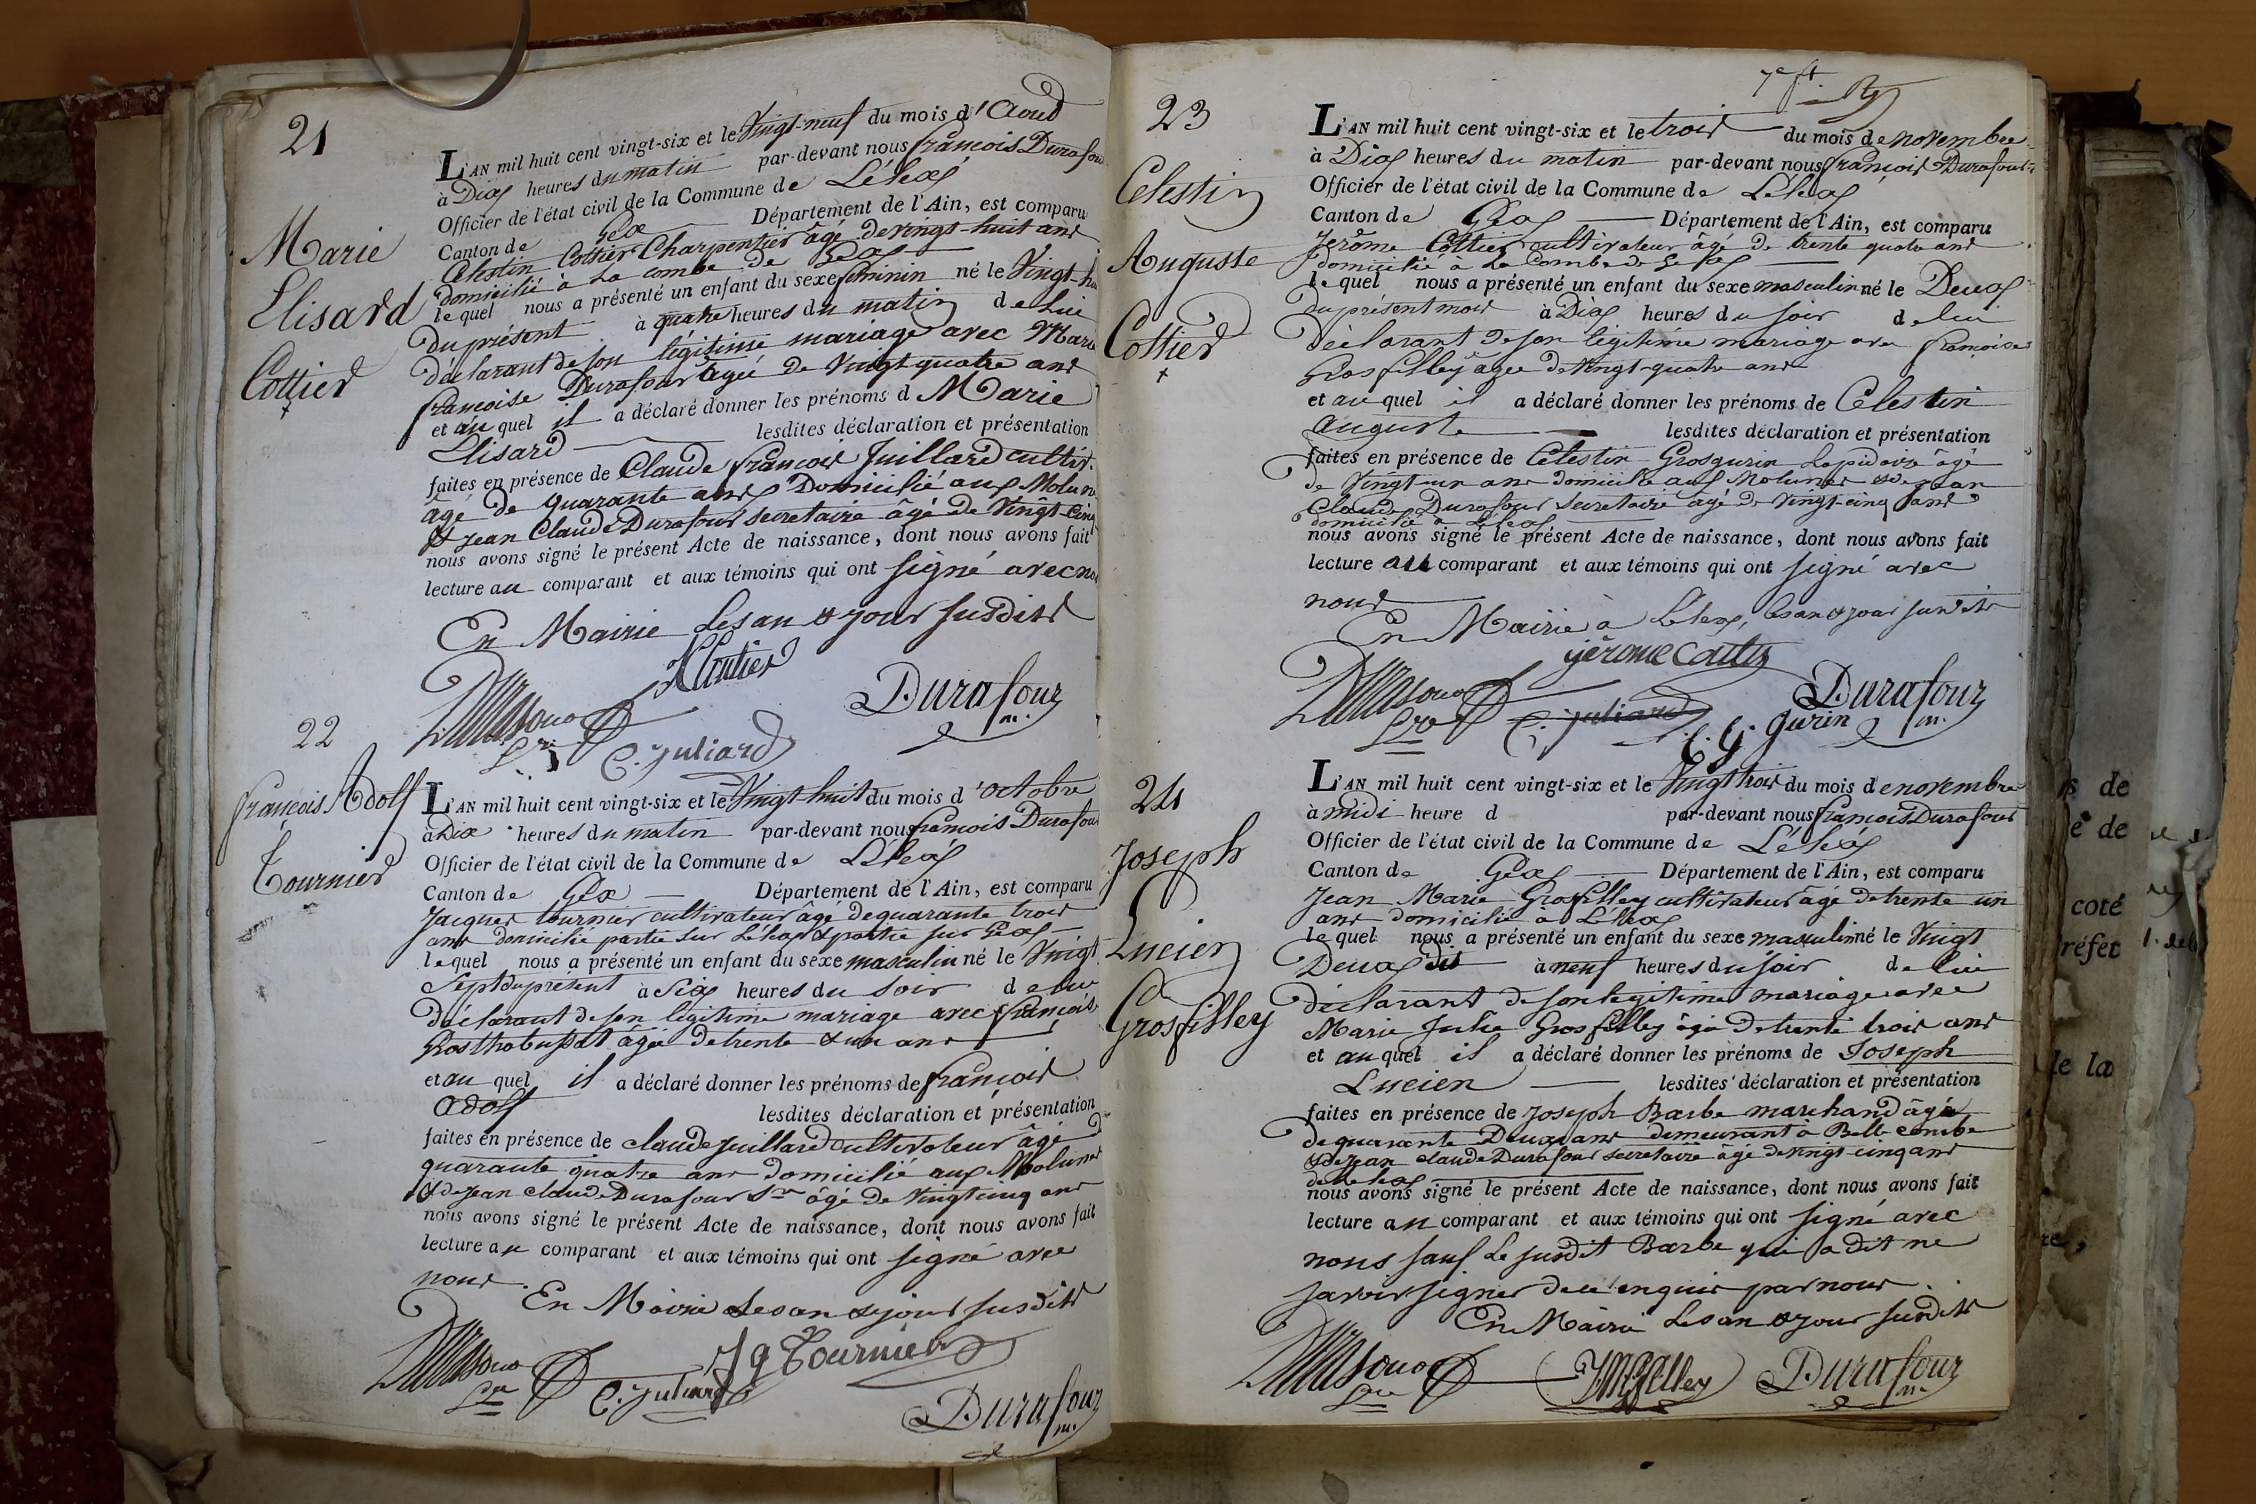 21
Marie
Elisard
Cottier
L'AN mil huit cent vingt-six et le Vingt-neuf du mois d'Aoud
à Dix heures du matin par-devant nous françois Durafour
Officier de l'état civil de la Commune de Léleax
Canton de Gex Département de l'Ain, est comparu
Celestin Cottier Charpentier âgé de vingt-huit ans
domicilié à La combe de Geax
le quel nous a présenté un enfant du sexe feminin né le Vingt-hu
du présent à quatre heures du matin de Lui
déclarant de son légitime mariage avec Marie
françoise Durafour âgée de Vingt quatre ans
et au quel il a déclaré donner les prénoms d Marie
Elisard lesdites déclaration et présentation
faites en présence de Claude françois Juillard cultiv.
âgé de quarante ans Domicilié aux Molune
& jean Claude Durafour secretaire âgé de Vingt-cinq
nous avons signé le présent Acte de naissance, dont nous avons fait
lecture au comparant et aux témoins qui ont signé avec no
En Mairie Les an & jour susdits
Durafour
C. Juliard
22
françois Adolf
Tournier
L'AN mil huit cent vingt-six et le Vingt-huit du mois d'octobre
à Dix heures du matin par-devant nous françois Durafour
Officier de l'état civil de la Commune de Léleax
Canton de Gex Département de l'Ain, est comparu
Jacques tournier cultivateur âgé de quarante trois
ans domicilié partie sur Léleax & partie sur Geax
le quel nous a présenté un enfant du sexe masculin né le Vingt
Sept du présent à Six heures du soir de lui
déclarant de son légitime mariage avec françois
âgée de trente & un ans
et au quel il a déclaré donner les prénoms de françois
Adolf lesdites déclaration et présentation
faites en présence de claude juillard cultivateur âgé D
quarante quatre ans domicilié aux Molunes
& de jean claude Durafour Sre âgé de Vingt cinq ans
nous avons signé le présent Acte de naissance, dont nous avons fait
lecture au comparant et aux témoins qui ont signé avec
nous.
En Mairie Les an & jour susdits
Jq Tournier
C. Juliard
Durafour
m.
23
Celestin
Auguste
Cottier
L'AN mil huit cent vingt-six et le trois du mois de novembre
à Dix heures du matin par-devant nous françois Durafour
Officier de l'état civil de la Commune de Léleax
Canton de Geax Département de l'Ain, est comparu
Jerôme Cottier cultivateur âgé de trente quatre ans
domicilié à La Combe de Geax
le quel nous a présenté un enfant du sexe masculin né le Deux
du présent mois à Dix heures du soir de lui
déclarant de son légitime mariage avec françoise
Grosfilley âgée de Vingt-quatre ans
et au quel il a déclaré donner les prénoms de Celestin
Auguste lesdites déclaration et présentation
faites en présence de Celestin Grosgurin Lapidaire âgé
de Vingt un ans domicilié aux Molunes & de jean
Claude Durafour secretaire âgé de Vingt-cinq ans
domicilié à Léleax
nous avons signé le présent Acte de naissance, dont nous avons fait
lecture au comparant et aux témoins qui ont signé avec
nous
En Mairie à Léleax, Les an & jour susdits
jérome Cottier
Durafour
m.
C. Juliard
C. G. Gurin
24
Joseph
Lucien
Grosfilley
L'AN mil huit cent vingt-six et le Vingt trois du mois de novembre
à midi heure d par-devant nous françois Durafour
Officier de l'état civil de la Commune de Léleax
Canton de Geax Département de l'Ain, est comparu
Jean Marie Grosfilley cultivateur âgé de trente un
ans domicilié à Léleax
le quel nous a présenté un enfant du sexe masculin né le Vingt
Deux dit à neuf heures du soir de lui
déclarant de son legitime mariage avec
Marie Julie Grosfilley âgée de trente trois ans
et au quel il a déclaré donner les prénoms de Joseph
Lucien lesdites déclaration et présentation
faites en présence de Joseph Barbe marchand âgé
de quarante Deux ans demeurant à Belle combe
& de jean claude Durafour secretaire âgé de vingt-cinq ans
de Léleax
nous avons signé le présent Acte de naissance, dont nous avons fait
lecture au comparant et aux témoins qui ont signé avec
nous sauf Le susdit Barbe qui a dit ne
savoir signer de ce enquis par nous.
En Mairie Les an & jour susdits
JMGfilley
Durafour
m.
s de
e de
coté
réfet
de la